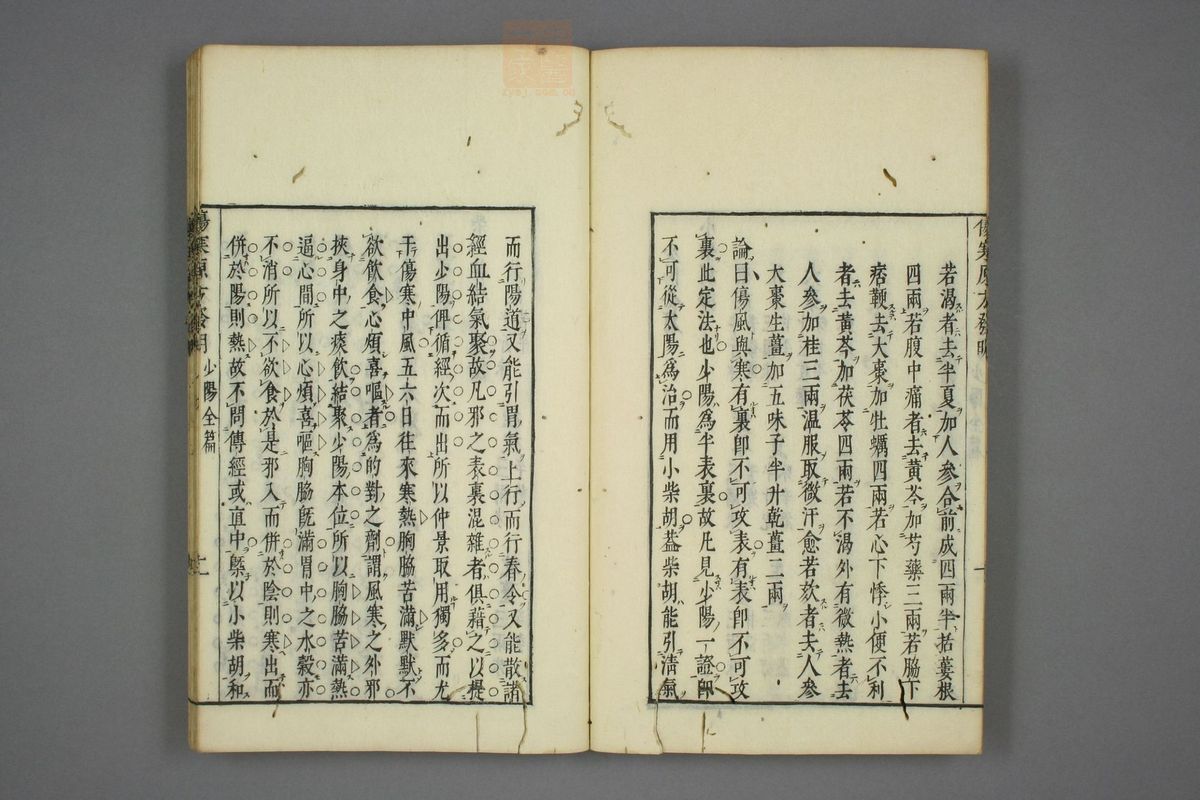 若渴者去半夏加人參合前成四兩半括蔞根
四兩若腹中痛者去黃芩加芍藥三兩若脇下
痞鞕去大棗加牡蠣四兩若心下悸小便不利
者去黃芩加茯苓四兩若不渴外有微熱者去
人參加桂三兩溫服取微汗愈若欬者去人參
大棗生薑加五味子半升乾薑二兩
論曰傷風與寒有裏卽不可攻表有表卽不可攻
裏此定法也少陽爲半表裏故凡見少陽一證卽
不可從太陽爲治而用小柴胡葢柴胡能引淸氣
而行陽道又能引胃氣上行而行春令又能散諸
經血結氣聚故凡邪之表裏混雜者俱藉之以提
出少陽俾循經次而出所以仲景取用獨多而尤
于傷寒中風五六日往來寒熱胸脇苦滿默默不
欲飮食心煩喜嘔者爲的對之劑謂風寒之外邪
挾身中之痰飮結聚少陽本位所以胸脇苦滿熱
逼心間所以心煩喜嘔胸脇旣滿胃中之水穀亦
不消所以不欲食於是邪入而併於陰則寒出而
併於陽則熱故不問傳經或直中槩以小柴胡和
少陽全篇